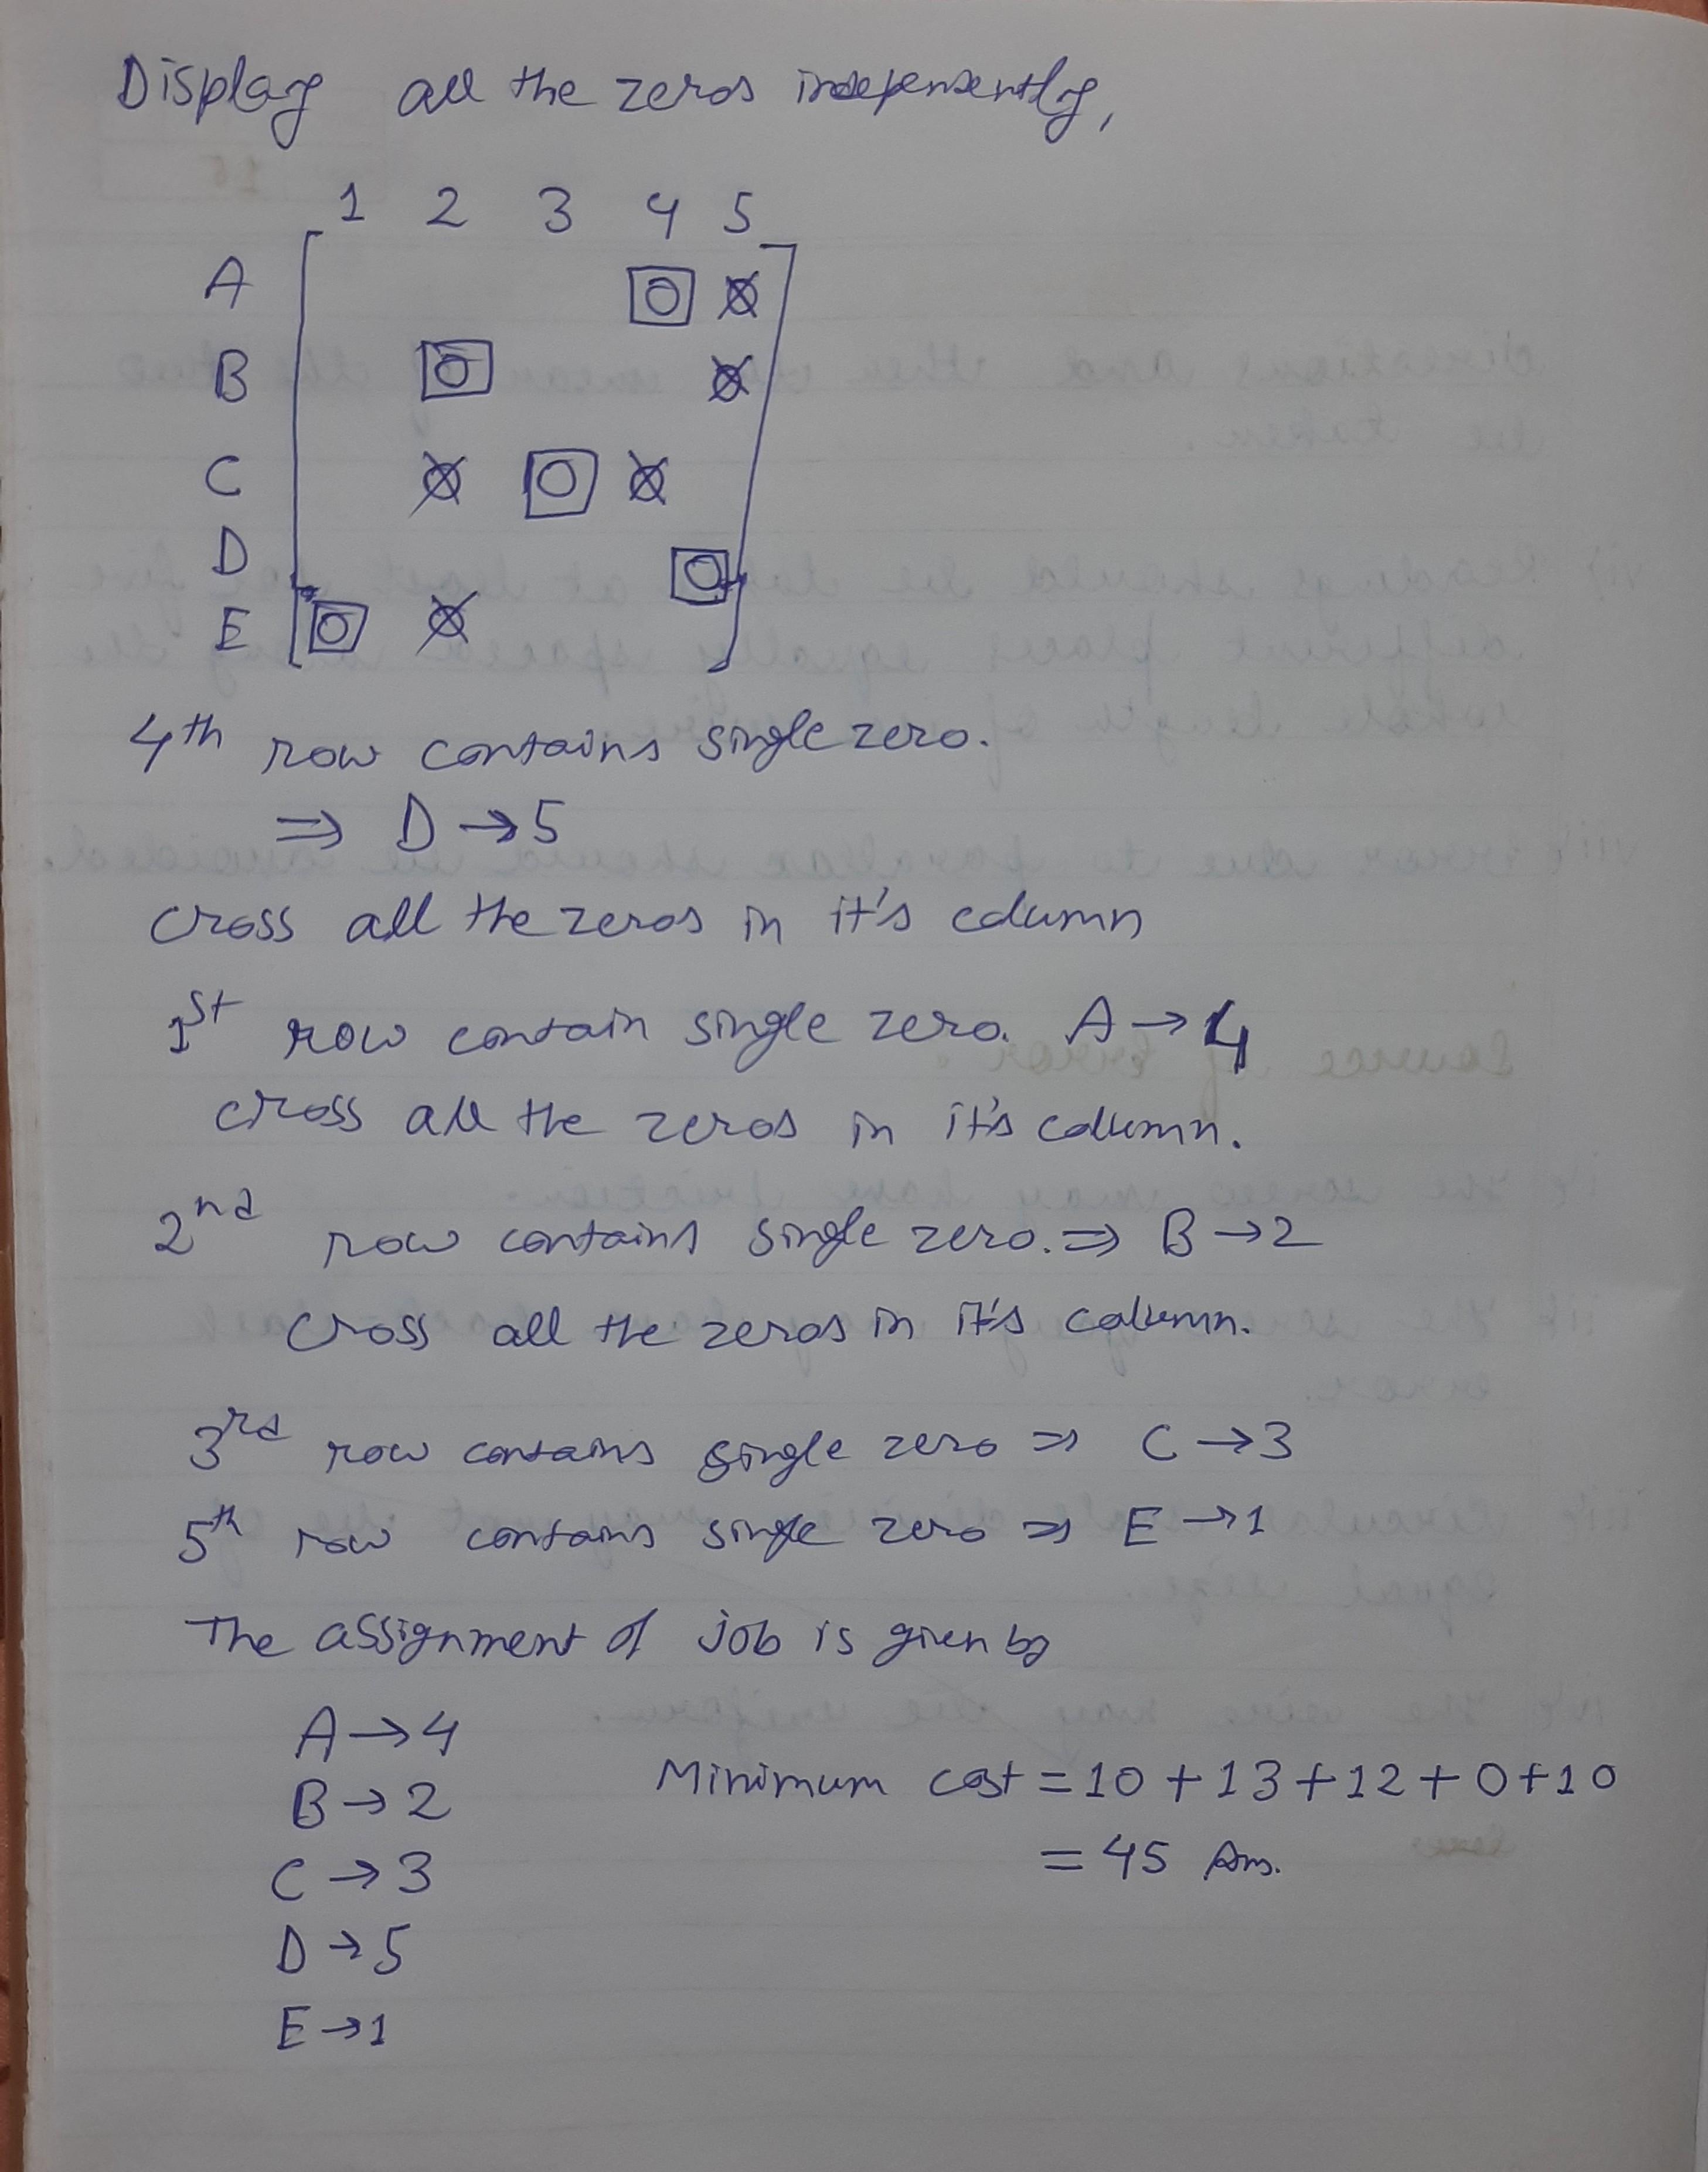 Display all the zeros independently,
1 2 3 4 5
A 0 0
B 0 0
C 0 0 0
D 0
E 0 0
4th row contains single zero.
⇒ D → 5
cross all the zeros in it's column
1st row contain single zero. A → 4
cross all the zeros in it's column.
2nd row contains single zero. ⇒ B → 2
Cross all the zeros in it's column.
3rd row contains single zero ⇒ C → 3
5th row contains single zero ⇒ E → 1
The assignment of job is given by
A → 4
B → 2
Minimum cost = 10 + 13 + 12 + 0 + 10
= 45 Ans.
C → 3
D → 5
E → 1